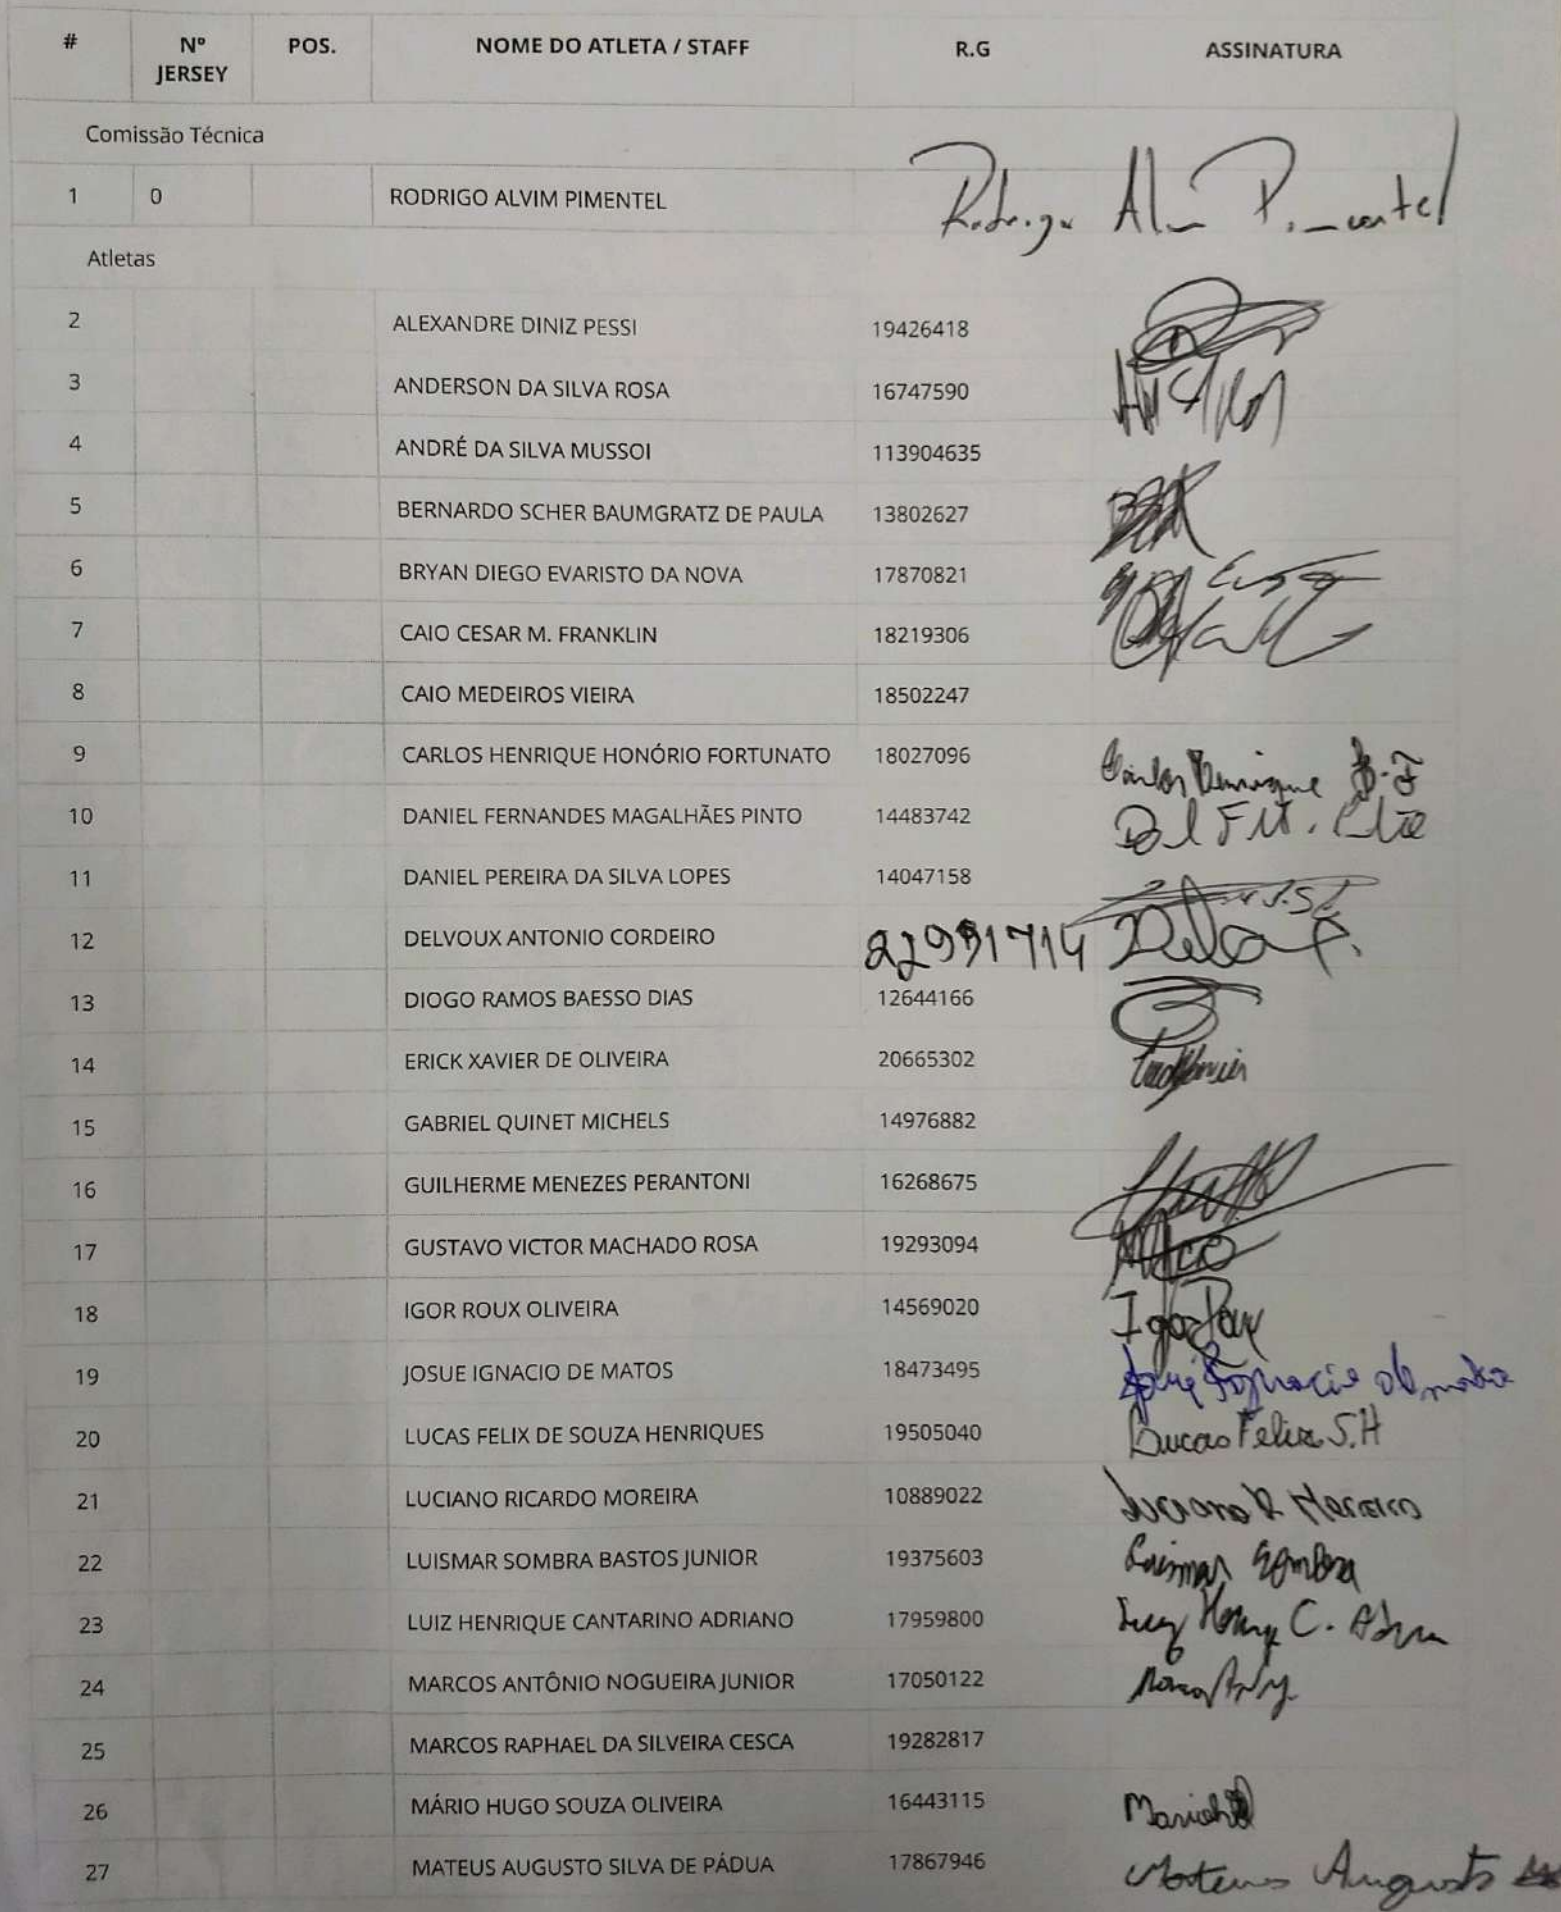 # Nº JERSEY POS. NOME DO ATLETA / STAFF R.G ASSINATURA
Comissão Técnica
1 0 RODRIGO ALVIM PIMENTEL Rodrigo Alvim Pimentel
Atletas
2 ALEXANDRE DINIZ PESSI 19426418
3 ANDERSON DA SILVA ROSA 16747590
4 ANDRÉ DA SILVA MUSSOI 113904635
5 BERNARDO SCHER BAUMGRATZ DE PAULA 13802627
6 BRYAN DIEGO EVARISTO DA NOVA 17870821
7 CAIO CESAR M. FRANKLIN 18219306
8 CAIO MEDEIROS VIEIRA 18502247
9 CARLOS HENRIQUE HONÓRIO FORTUNATO 18027096 Carlos Henrique H.F
10 DANIEL FERNANDES MAGALHÃES PINTO 14483742
11 DANIEL PEREIRA DA SILVA LOPES 14047158
12 DELVOUX ANTONIO CORDEIRO 22991714
13 DIOGO RAMOS BAESSO DIAS 12644166
14 ERICK XAVIER DE OLIVEIRA 20665302
15 GABRIEL QUINET MICHELS 14976882
16 GUILHERME MENEZES PERANTONI 16268675
17 GUSTAVO VICTOR MACHADO ROSA 19293094
18 IGOR ROUX OLIVEIRA 14569020 Igor Roux
19 JOSUE IGNACIO DE MATOS 18473495 Josué Ignacio de matos
20 LUCAS FELIX DE SOUZA HENRIQUES 19505040 Lucas Felix S.H
21 LUCIANO RICARDO MOREIRA 10889022 Luciano R Moreira
22 LUISMAR SOMBRA BASTOS JUNIOR 19375603 Luismar Sombra
23 LUIZ HENRIQUE CANTARINO ADRIANO 17959800 Luiz Henrique C.
24 MARCOS ANTÔNIO NOGUEIRA JUNIOR 17050122
25 MARCOS RAPHAEL DA SILVEIRA CESCA 19282817
26 MÁRIO HUGO SOUZA OLIVEIRA 16443115
27 MATEUS AUGUSTO SILVA DE PÁDUA 17867946 Mateus Augusto